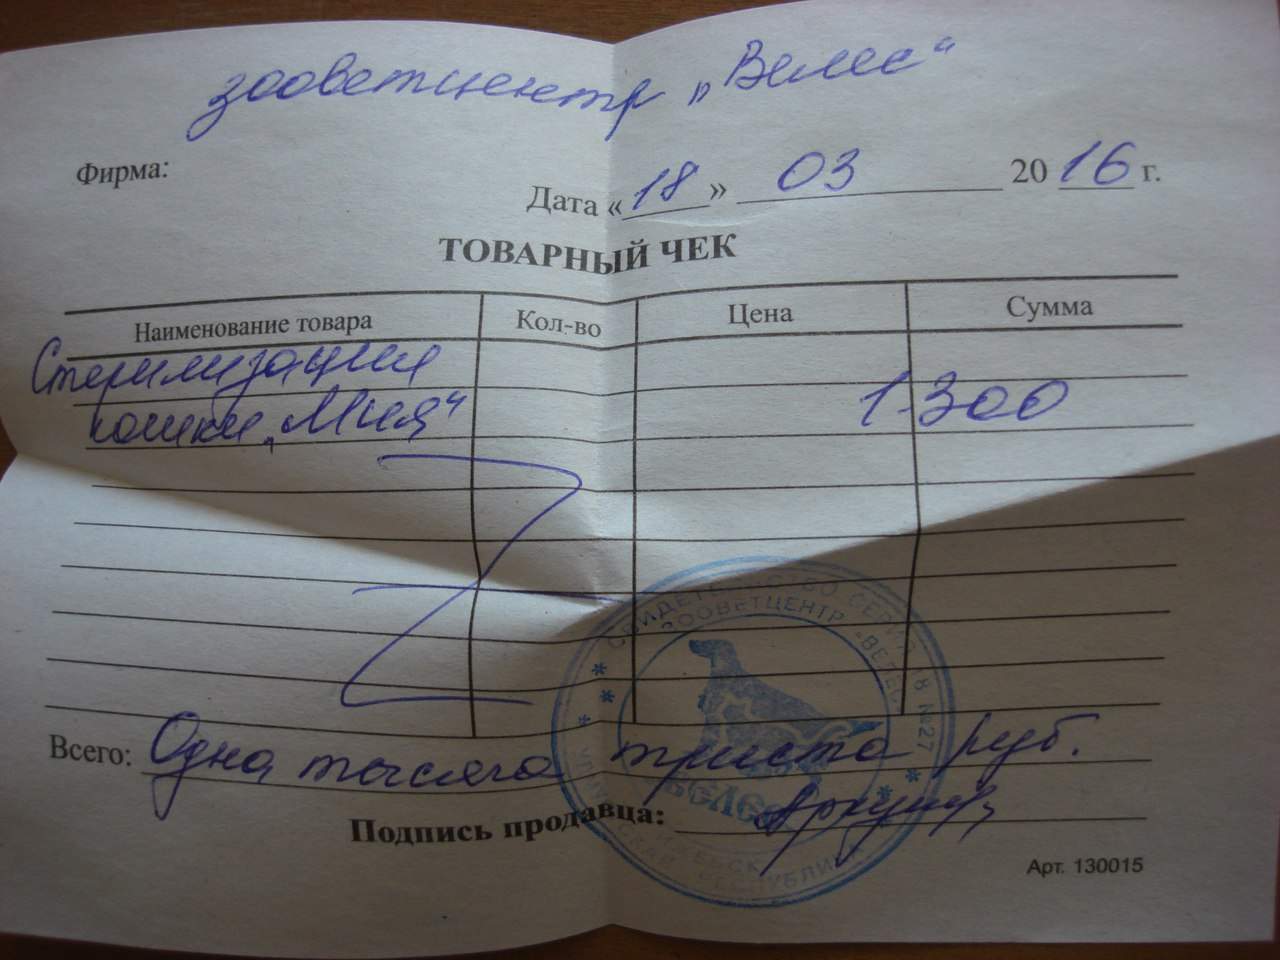 зооветцентр „Велес“
Фирма:
Дата «18» 03 2016 г.
ТОВАРНЫЙ ЧЕК
Наименование товара Кол-во Цена Сумма
Стерилизация
кошки „Мия“ 1300
СВИДЕТЕЛЬСТВО СЕРИЯ 18 №27
ЗООВЕТЦЕНТР «ВЕЛЕС»
Всего: Одна тысяча триста руб.
ВЕЛЕС
Подпись продавца:
РЕСПУБЛИКА
Арт. 130015